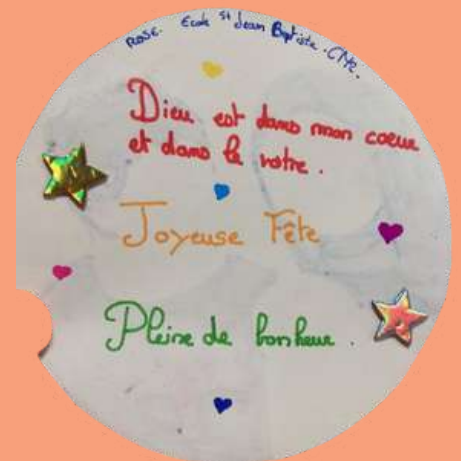 ROSE. Ecole St Jean Baptiste. CM2.
Dieu est dans mon coeur
et dans le votre.
Joyeuse Fête
Pleine de bonheur.